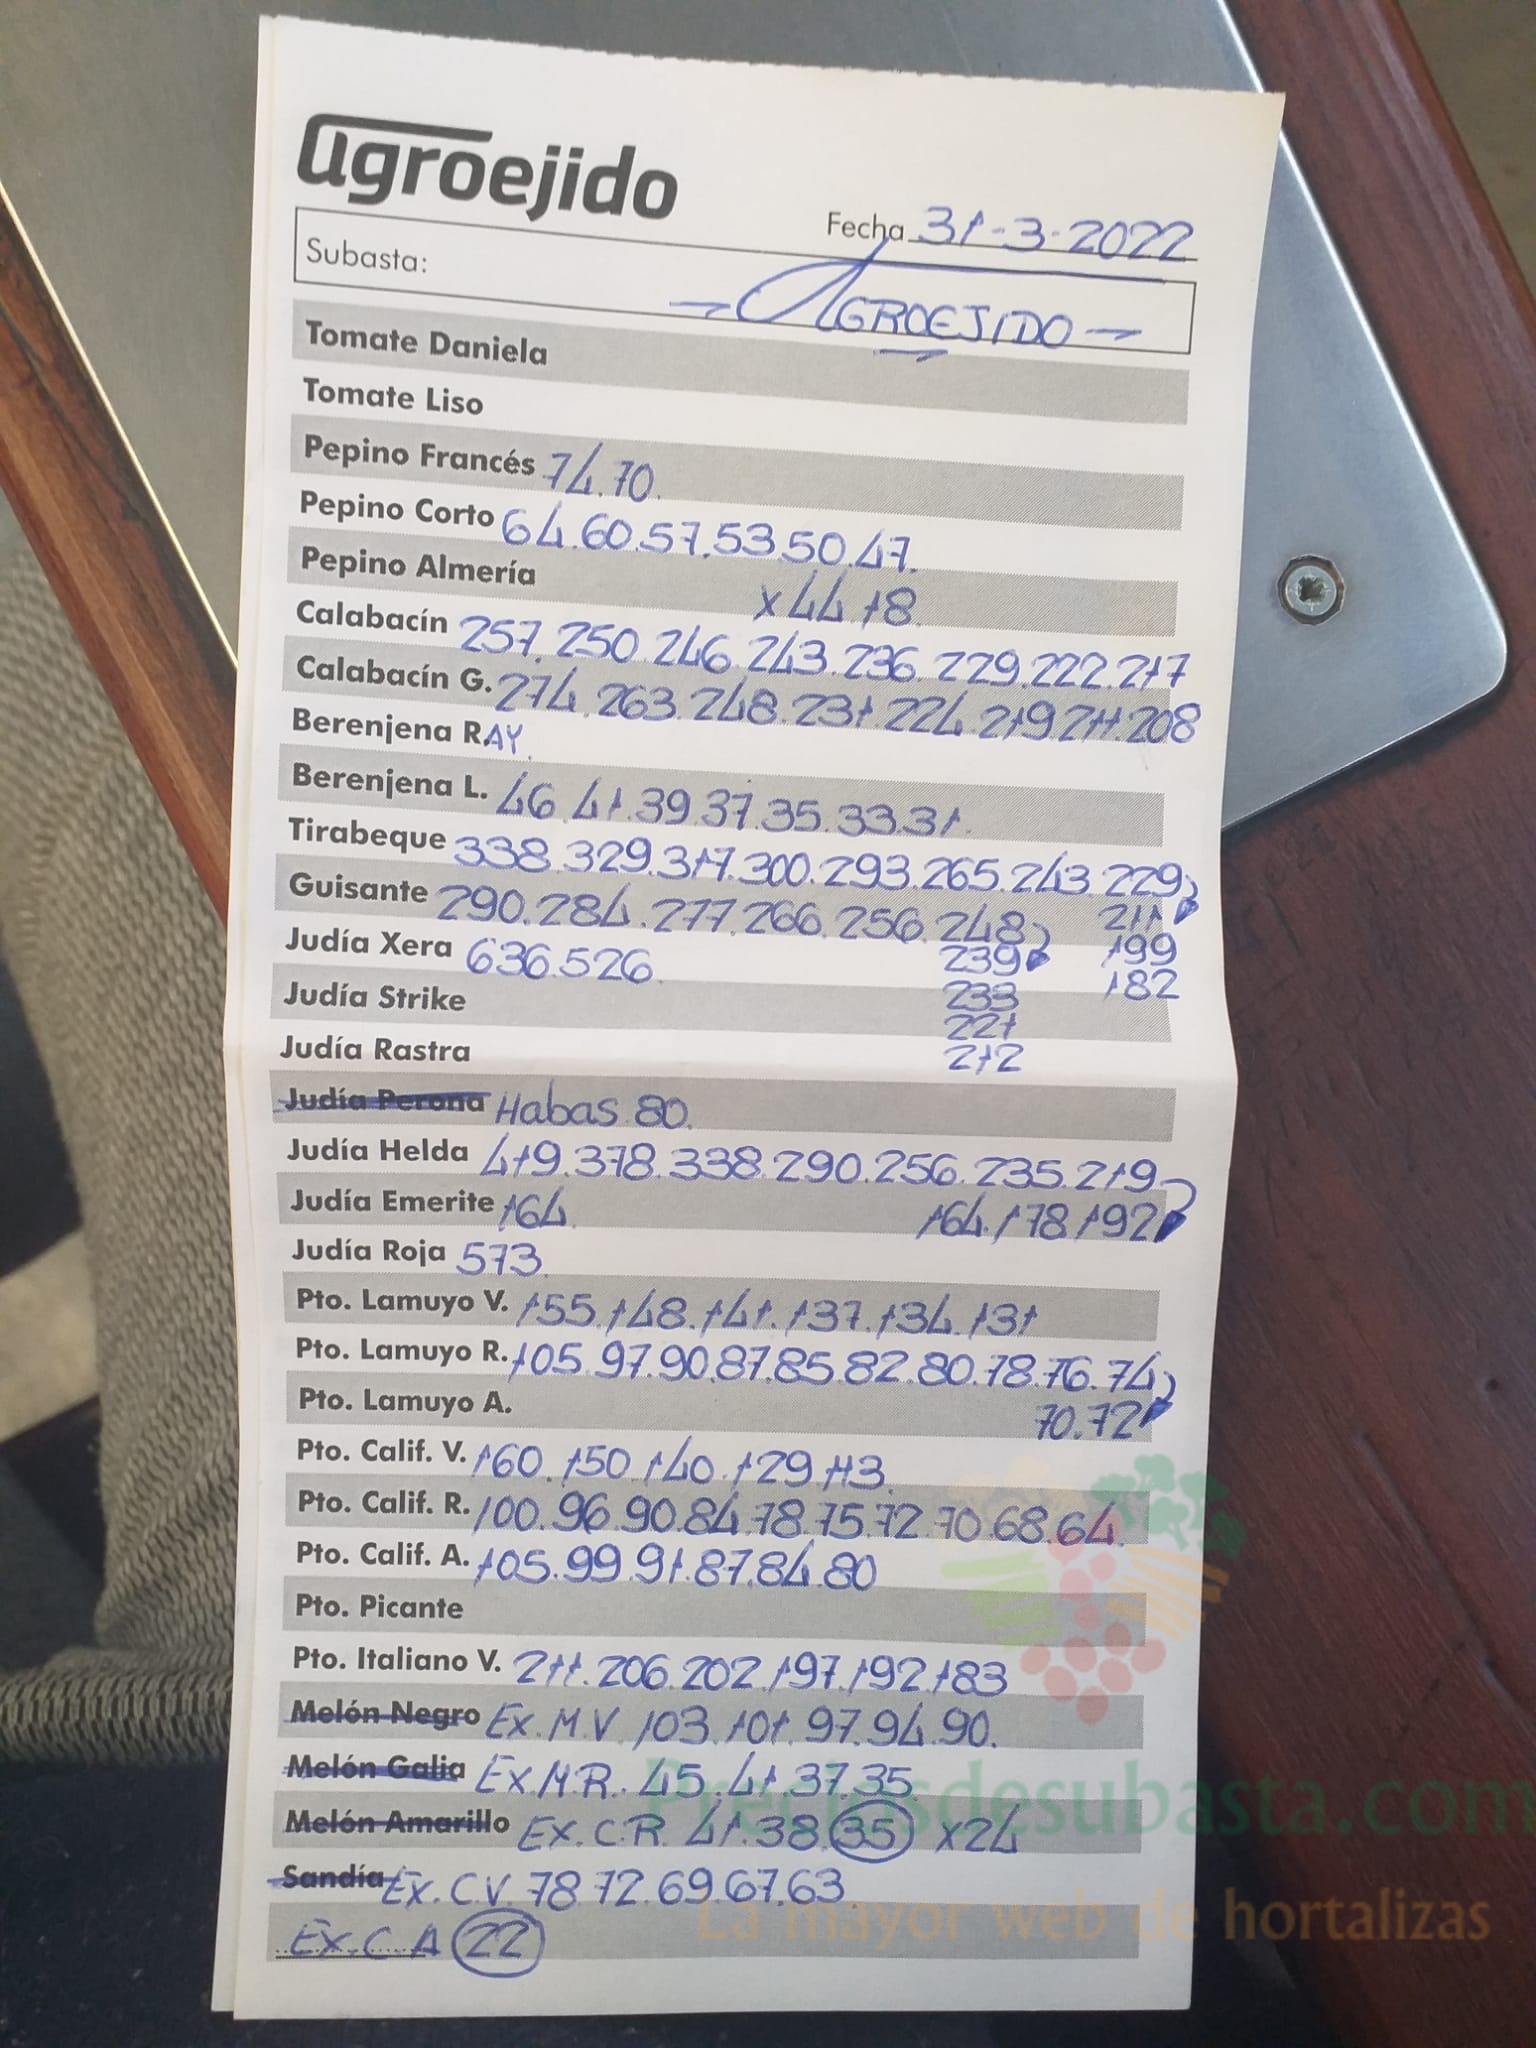 agroejido
Fecha 31-3-2022
Subasta: AGROEJIDO
Tomate Daniela
Tomate Liso
Pepino Francés 74.70.
Pepino Corto 64.60.57.53.50.47.
Pepino Almería x44.18.
Calabacín 257.250.246.243.236.229.222.217
Calabacín G. 274.263.248.231.224.219.211.208
Berenjena R.AY.
Berenjena L. 46.41.39.37.35.33.31.
Tirabeque 338.329.317.300.293.265.243.229
Guisante 290.284.277.266.256.248 211
Judía Xera 636.526. 239 199
182
Judía Strike 233
221
Judía Rastra 212
Judía Perona Habas 80.
Judía Helda 419.378.338.290.256.235.219
Judía Emerite 164. 164.178.192
Judía Roja 573.
Pto. Lamuyo V. 155.148.141.137.134.131
Pto. Lamuyo R. 105.97.90.87.85.82.80.78.76.74
Pto. Lamuyo A. 70.72
Pto. Calif. V. 160.150.140.129.113.
Pto. Calif. R. 100.96.90.84.78.75.72.70.68.64.
Pto. Calif. A. 105.99.91.87.84.80
Pto. Picante
Pto. Italiano V. 211.206.202.197.192.183
Melón Negro Ex.M.V 103.101.97.94.90.
Melón Galia Ex.M.R. 45.41.37.35.
Preciosdesubasta.com
Melón Amarillo Ex.C.R. 41.38.35 x24
Sandía Ex.C.V. 78.72.69.67.63.
La mayor web de hortalizas
Ex.C.A 22